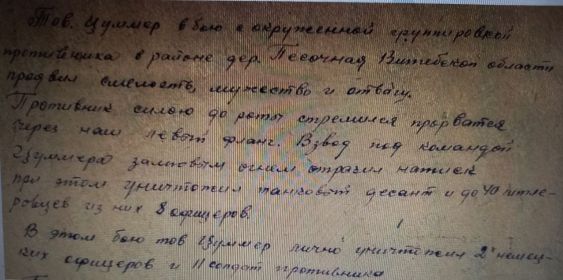 Тов. Цуммер в бою с окруженной группировкой
противника в районе дер. Песочная Витебской области
проявил смелость, мужество и отвагу.
Противник силою до роты стремился прорватся
через наш левый фланг. Взвод под командой
Цуммера залповым огнем отразил натиск
при этом уничтожил танковый десант и до 40 гитле-
ровцев из них 8 офицеров.
В этом бою тов Цуммер лично уничтожил 2х немец-
ких офицеров и 11 солдат противника